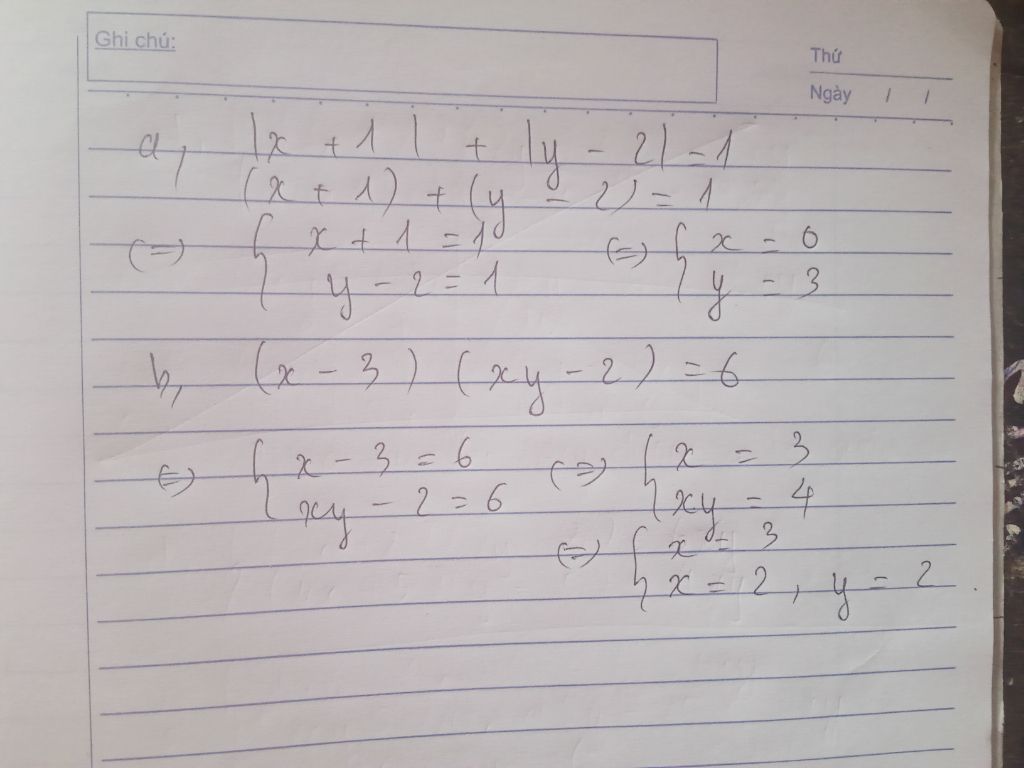 Ghi chú:
Thứ
Ngày / /
a, |x + 1| + |y - 2| = 1
(x + 1) + (y - 2) = 1
(=) { x + 1 = 1 (=) { x = 0
y - 2 = 1 y = 3
b, (x - 3) (xy - 2) = 6
(=) { x - 3 = 6 (=) { x = 3
xy - 2 = 6 xy = 4
(=) { x = 3
x = 2, y = 2